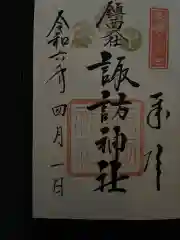 奉拝
鎮西大社
諏訪神社
令和六年四月一日